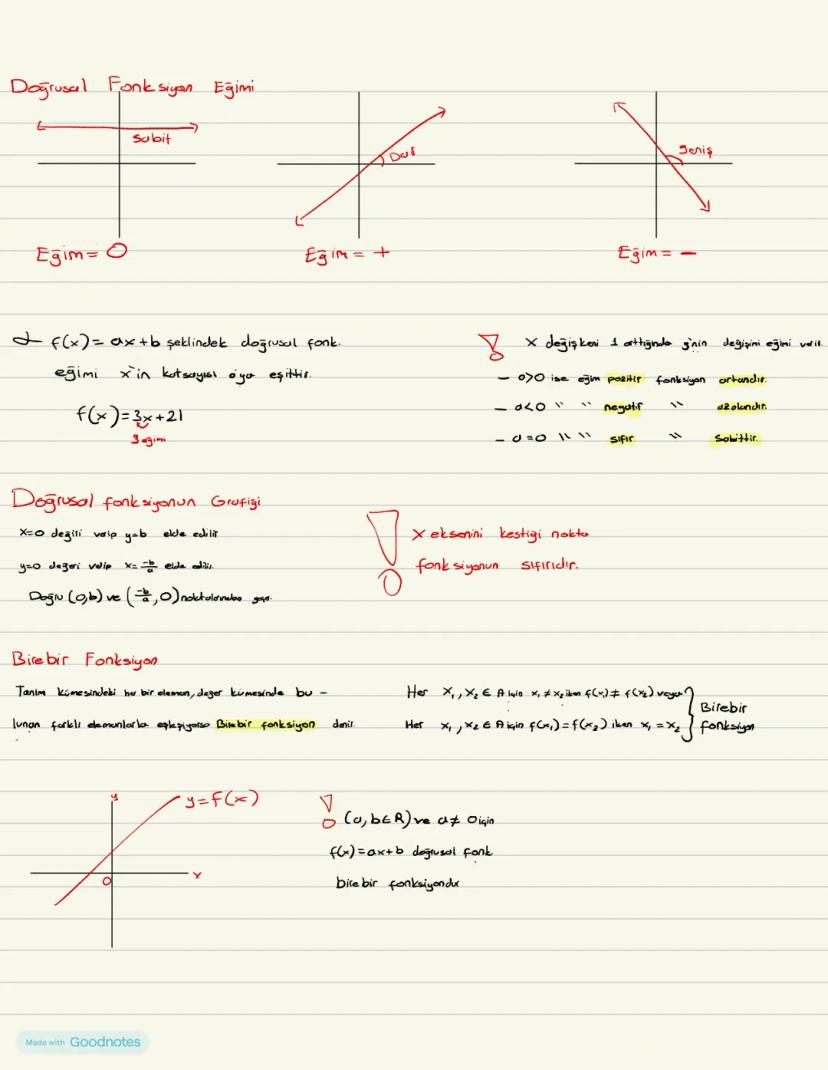 Doğrusal Fonksiyon Eğimi
Sabit
Dar
Geniş
Eğim = 0
Eğim = +
Eğim = -
f(x) = ax+b şeklindek doğrusal fonk.
eğimi x'in katsayısı a'ya eşittir.
f(x) = 3x+21
3 eğimi
! x değişkeni 1 arttığında y'nin değişimi eğimi verir
- a>0 ise eğim pozitif fonksiyon artandır.
- a<0 " " negatif " azalandır.
- a=0 " " sıfır " Sabittir.
Doğrusal fonksiyonun Grafiği
x=0 değeri verip y=b elde edilir
y=0 değeri verip x= -b/a elde edilir.
Doğru (0,b) ve (-b/a, 0) noktalarından geçer.
! X eksenini kestiği nokta
fonksiyonun sıfırıdır.
Birebir Fonksiyon
Tanım kümesindeki her bir eleman, değer kümesinde bu -
lunan farklı elemanlarla eşleşiyorsa Birebir fonksiyon denir.
Her x₁, x₂ ∈ A için x₁ ≠ x₂ iken f(x₁) ≠ f(x₂) veya
Her x₁, x₂ ∈ A için f(x₁) = f(x₂) iken x₁ = x₂
Birebir
fonksiyon
y
y=f(x)
0
x
! (a, b∈R) ve a≠ 0 için
f(x) = ax+b doğrusal fonk.
birebir fonksiyondur
Made with Goodnotes